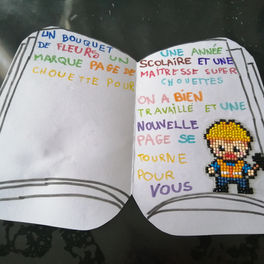 UN BOUQUET
DE FLEURS UN
MARQUE PAGE DE
CHOUETTE POUR
UNE ANNÉE
SCOLAIRE ET UNE
MAITRESSE SUPER
CHOUETTES
ON A BIEN
TRAVAILLÉ ET UNE
NOUVELLE
PAGE SE
TOURNE
POUR
VOUS